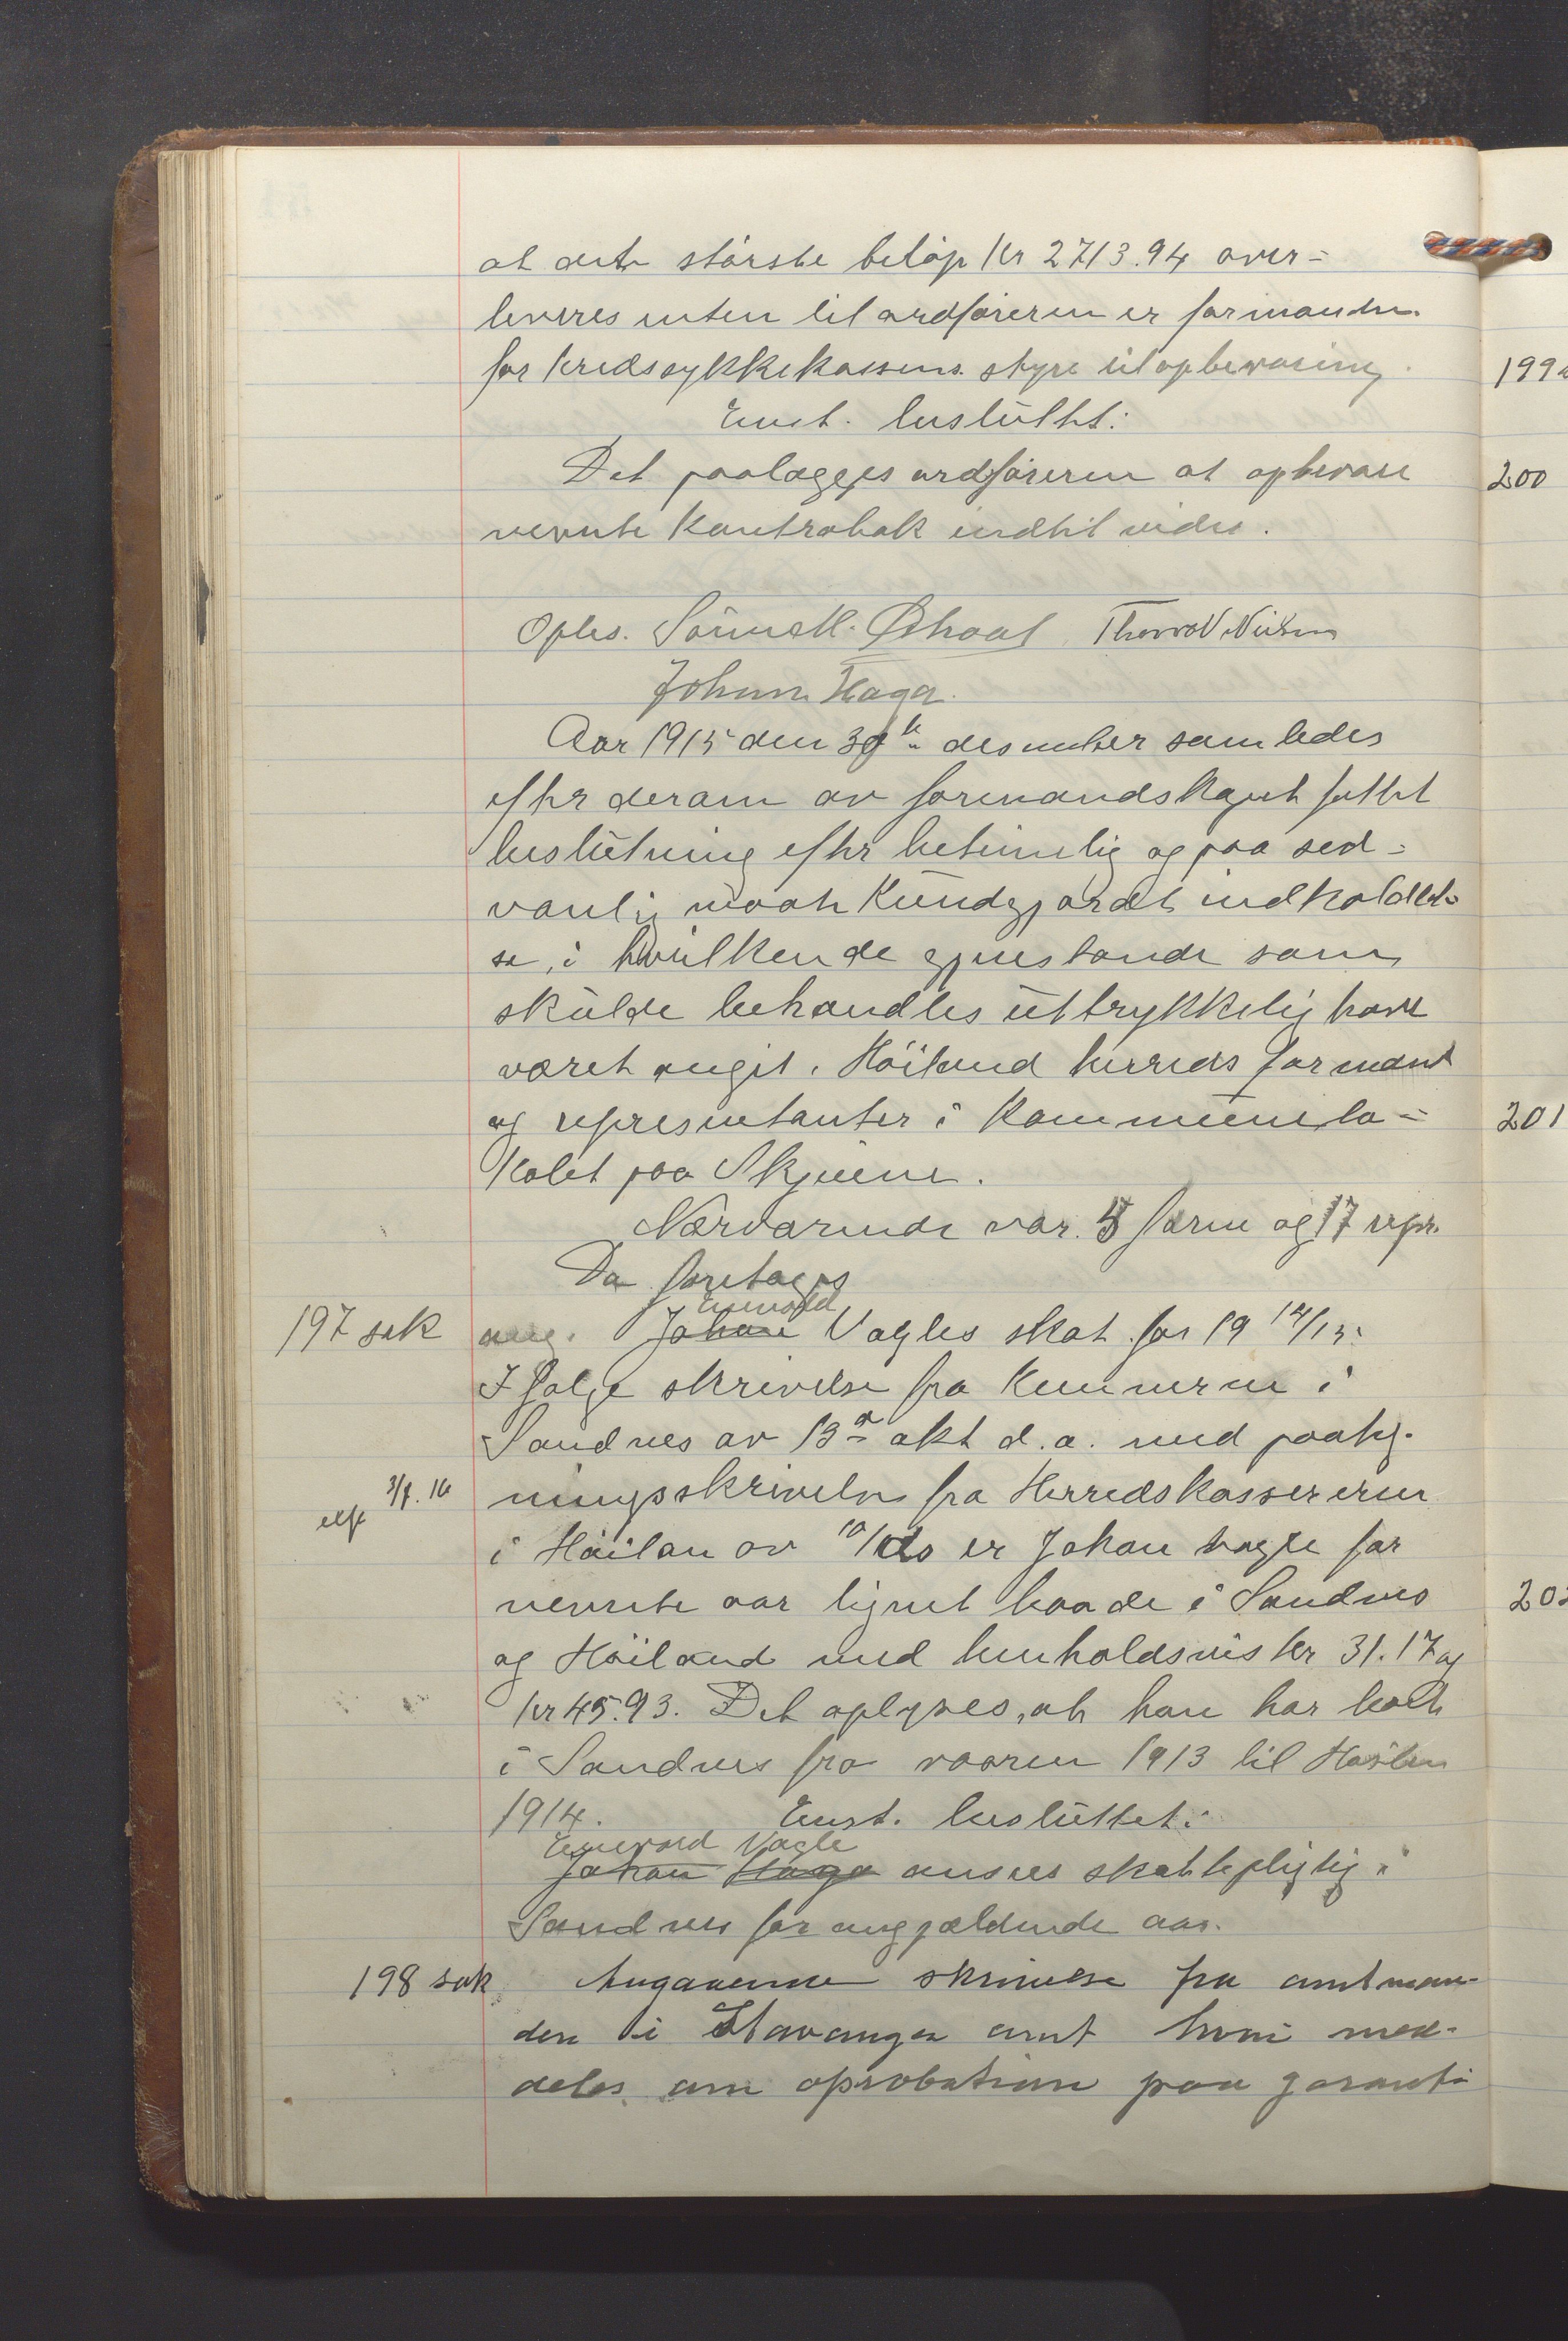 at dets störste belöp Kr 2713.94 over-
leveres enten til ordföreren er formanden
for Kredssykkekassens styre til opbevaring
Enst. besluttet:
Det paalægges ordföreren at opbevare
nevnte Kontrabok indtil videre.
Oples. Thorvald Nielsen
Johan Haga.
Aar 1915 den 30te desember samledes
efter derom av formandskapet fattet
beslutning efter betimelig og paa sed-
vanlig maate Kundgjordt indkaldel-
se, i hvilken de gjenstande som
skulde behandles uttrykkelig havde
været angit. Höiland herreds formænd
og representanter i Kommunelo-
kalet paa Skjæene.
Nærværende var 5 form og 17 repr.
Da foretages
Enevald
197 sak ang. Johan Vagles skat for 19 14/15.
I fölge skrivelse fra Kemneren i
Sandnes av 13de okt d.a. med paateg-
3/7.16 ningsskrivelse fra Herredskassereren
i Höilan av 10/ ds er Johan Vagle for
nevnte aar lignet baade i Sandnes
og Höiland med henholdsvis kr 31.17 og
kr 45.93. Det oplyses, at han har bodt
i Sandnes fra vaaren 1913 til Hösten
1914. Enst. besluttet:
Enevald Vagle
Johan Haga ansees skattepligtig i
Sandnes for angjældende aar.
198 sak Angaaende skrivelse fra amtman-
den i Stavanger amt hvori med-
deles om aprobation paa garanti
199
200
201
202